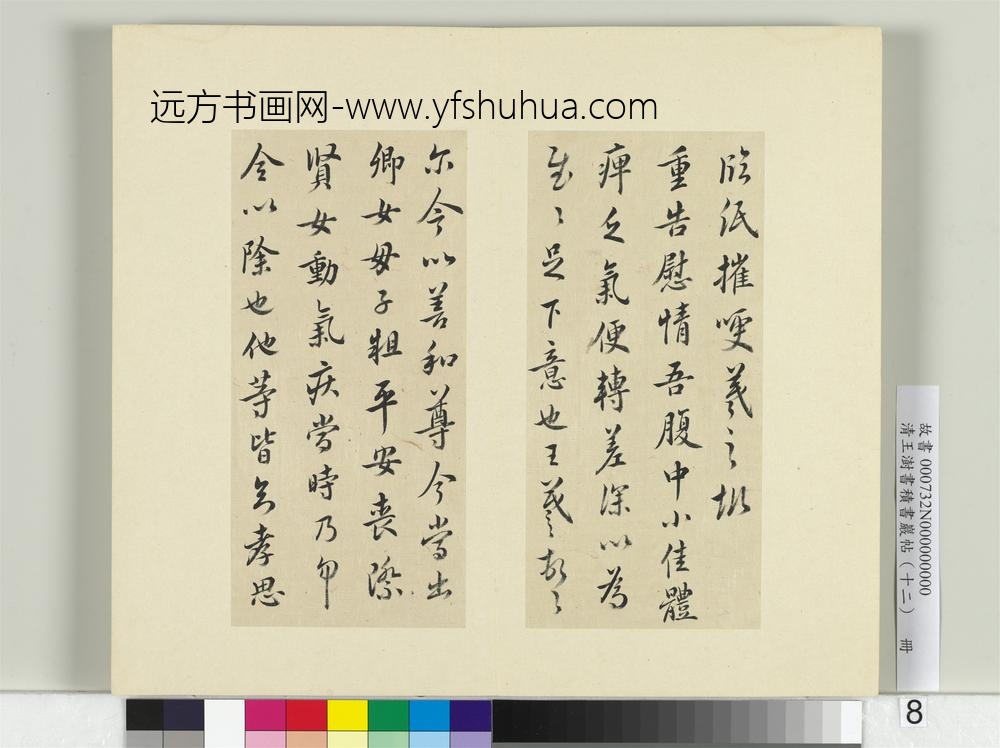 远方书画网-www.yfshuhua.com
臨紙摧哽羲之報
重告慰情吾腹中小佳體
痺乏氣便轉差深以為
足下意也王羲之
尔今以善和尊今當出
卿女母子粗平安喪際
賢女動氣疾當時乃
今以除也他等皆孝思
故書 000732N000000000
清王澍書積書巖帖(十二) 冊
8